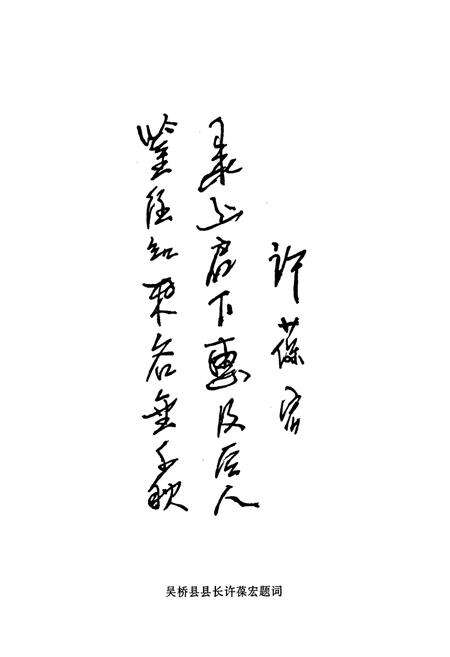 鉴往知来名垂千秋
承上启下惠及后人
许葆宏
吴桥县县长许葆宏题词